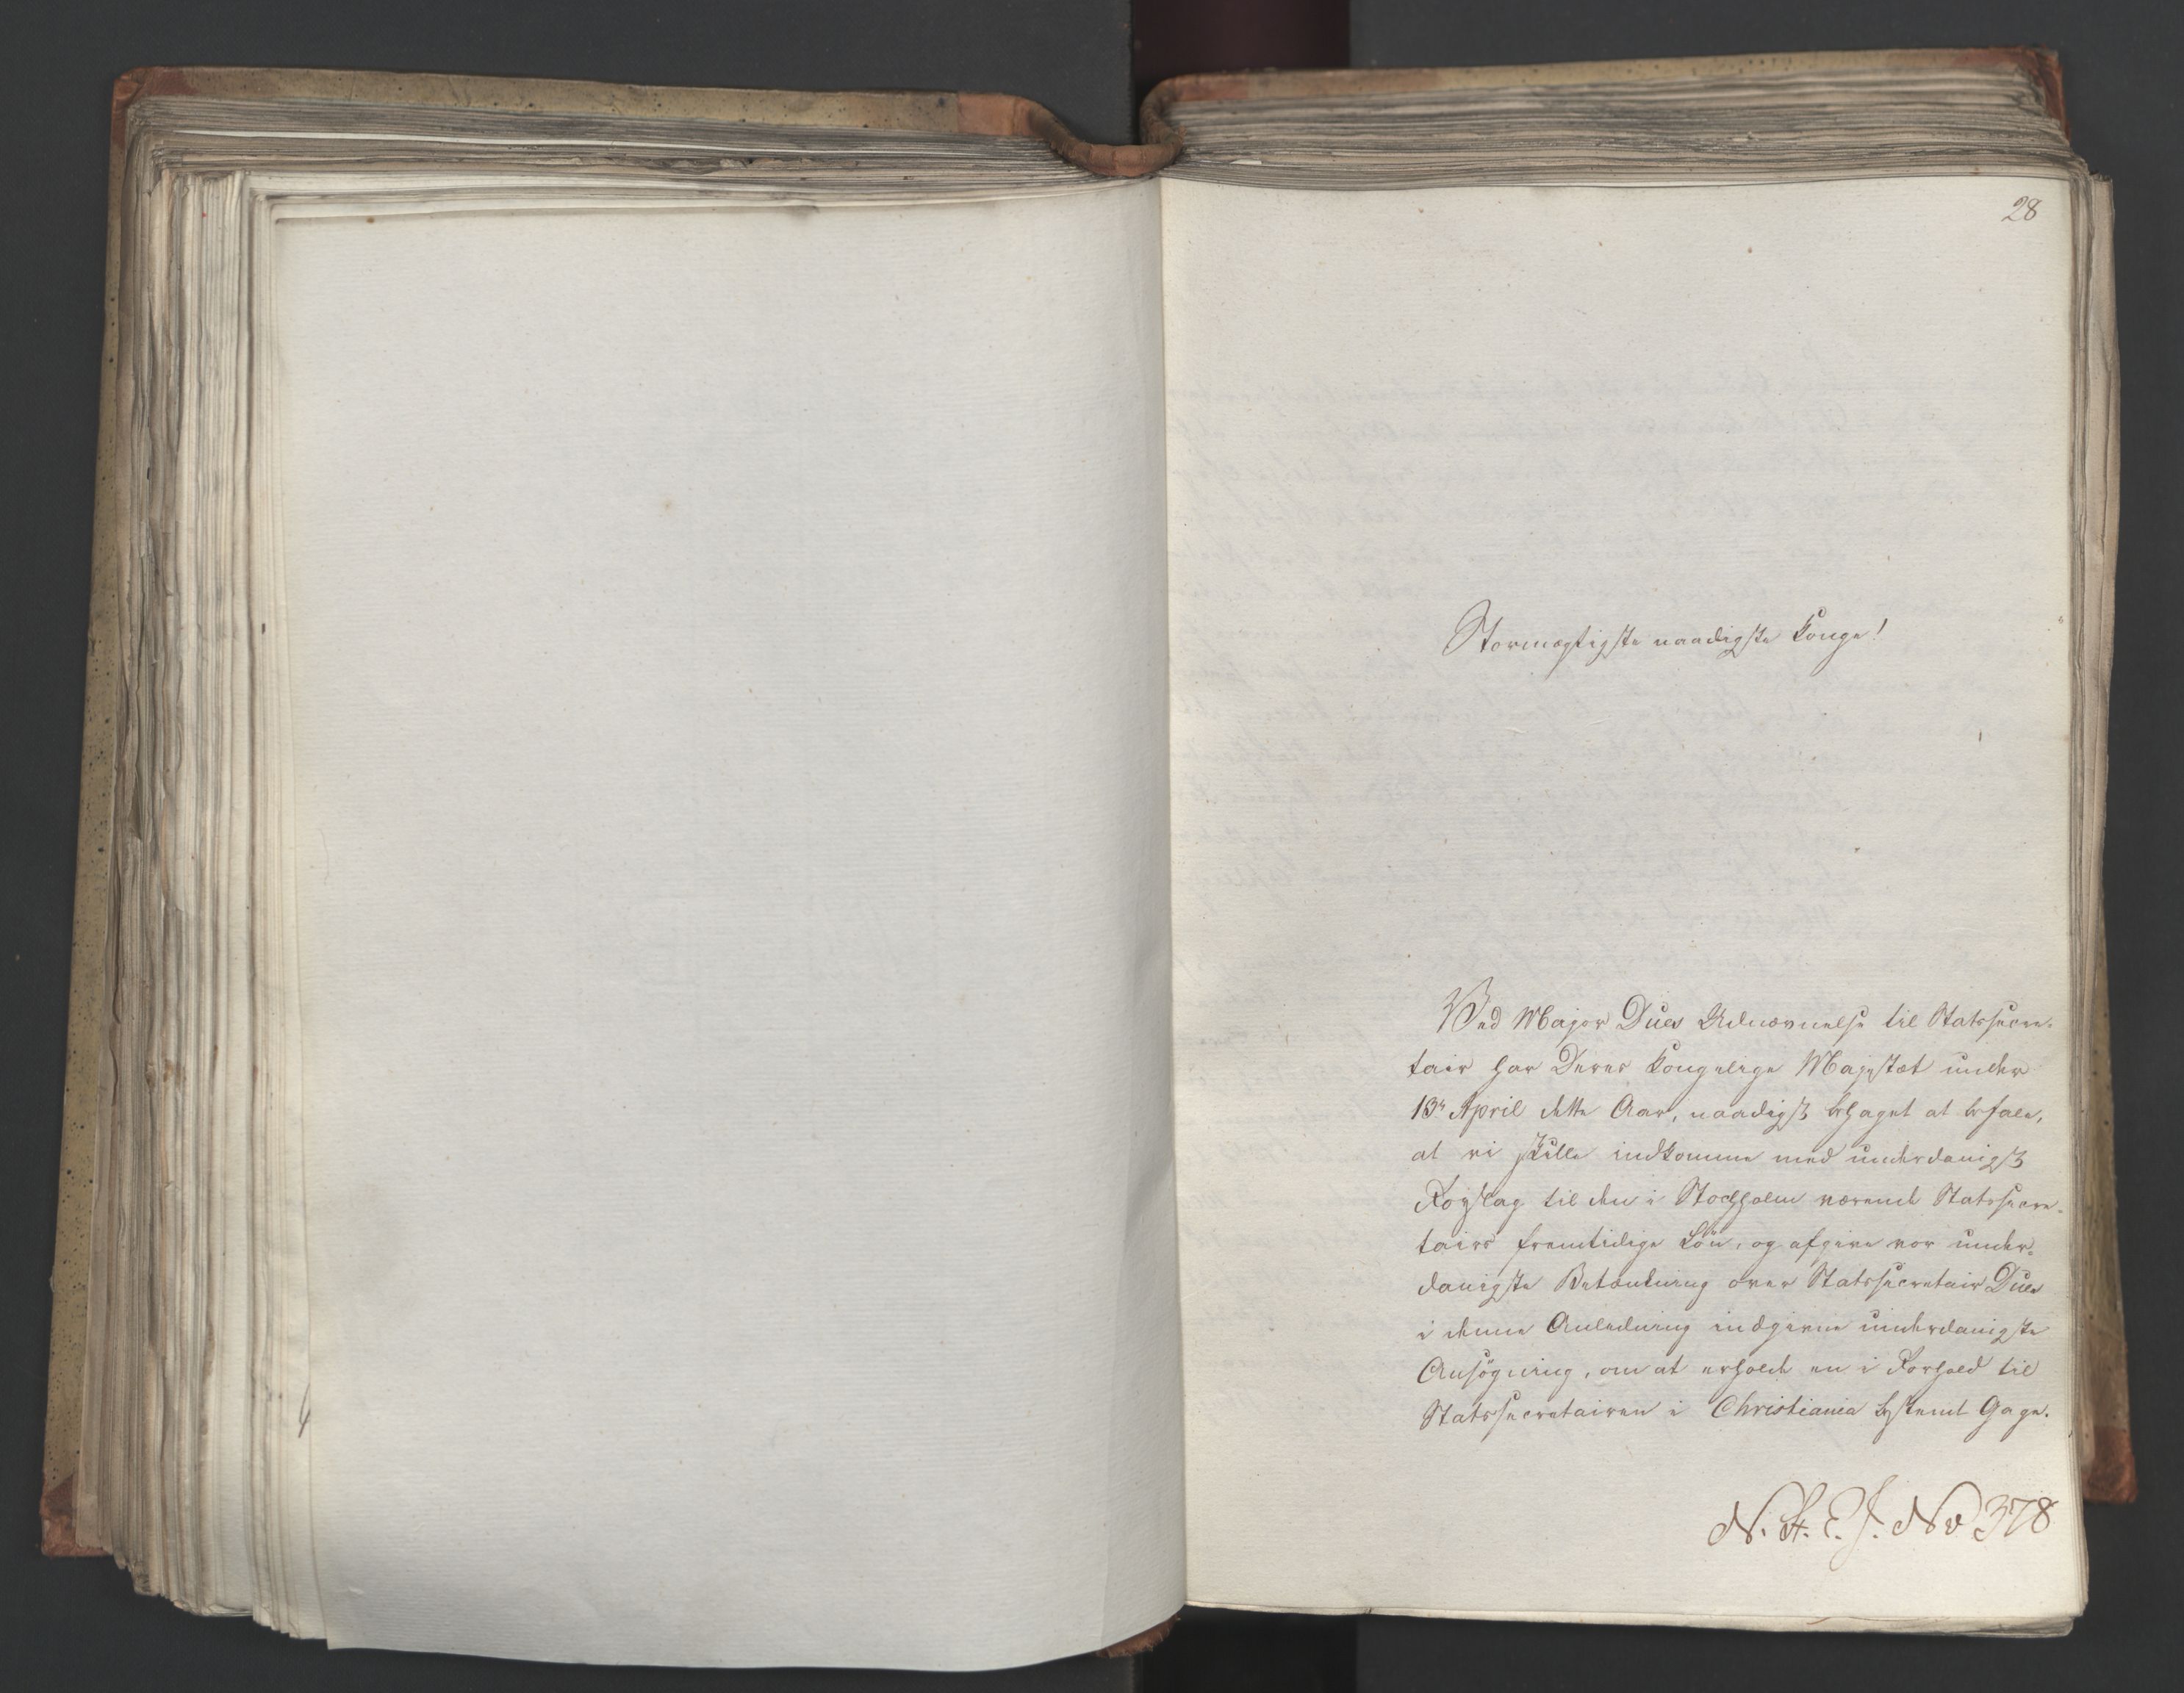 28
Stormægtigste naadigste Konge!
Ved Major Dues Udnævnelse til Statssecre-
tair har Deres Kongelige Majestæt under
13de April dette Aar, naadigst behaget at befale,
at vi skulle indkomme med underdanigst
Forslag til den i Stockholm værende Statssecre-
tairs fremtidige Løn, og afgive vor under-
danigste Betænkning over Statssecretair Dues
i denne Anledning indgivne underdanigste
Ansøgning, om at erholde en i Forhold til
Statssecretairen i Christiania bestemt Gage.
N. St. E. J. No 378